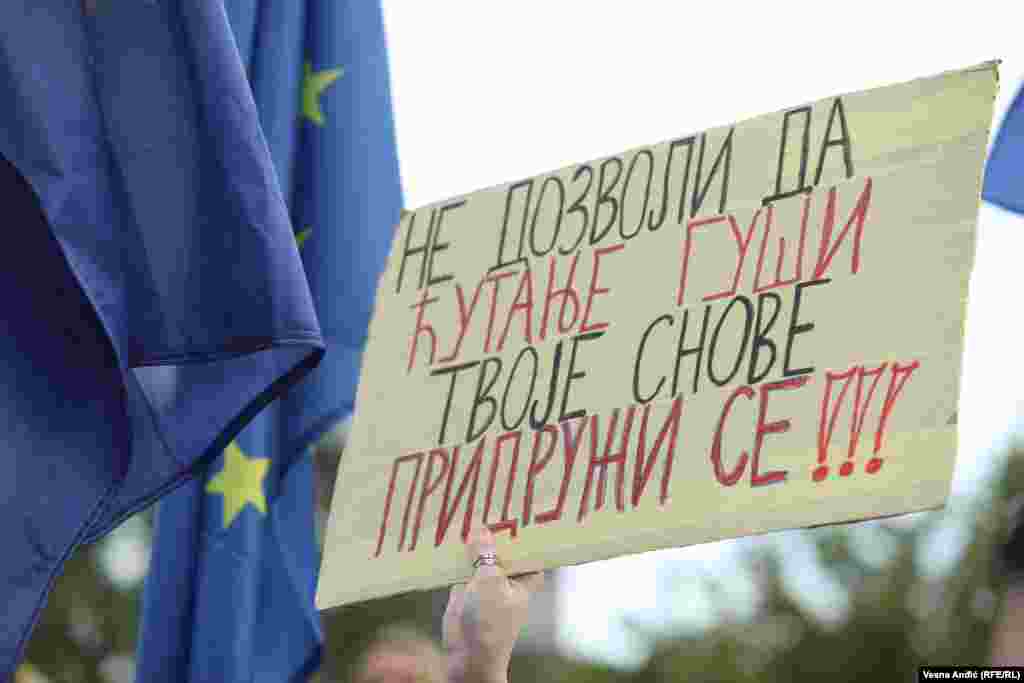 НЕ ДОЗВОЛИ ДА
ЋУТАЊЕ ГУШИ
ТВОЈЕ СНОВЕ
ПРИДРУЖИ СЕ!!!
Vesna Anđić (RFE/RL)